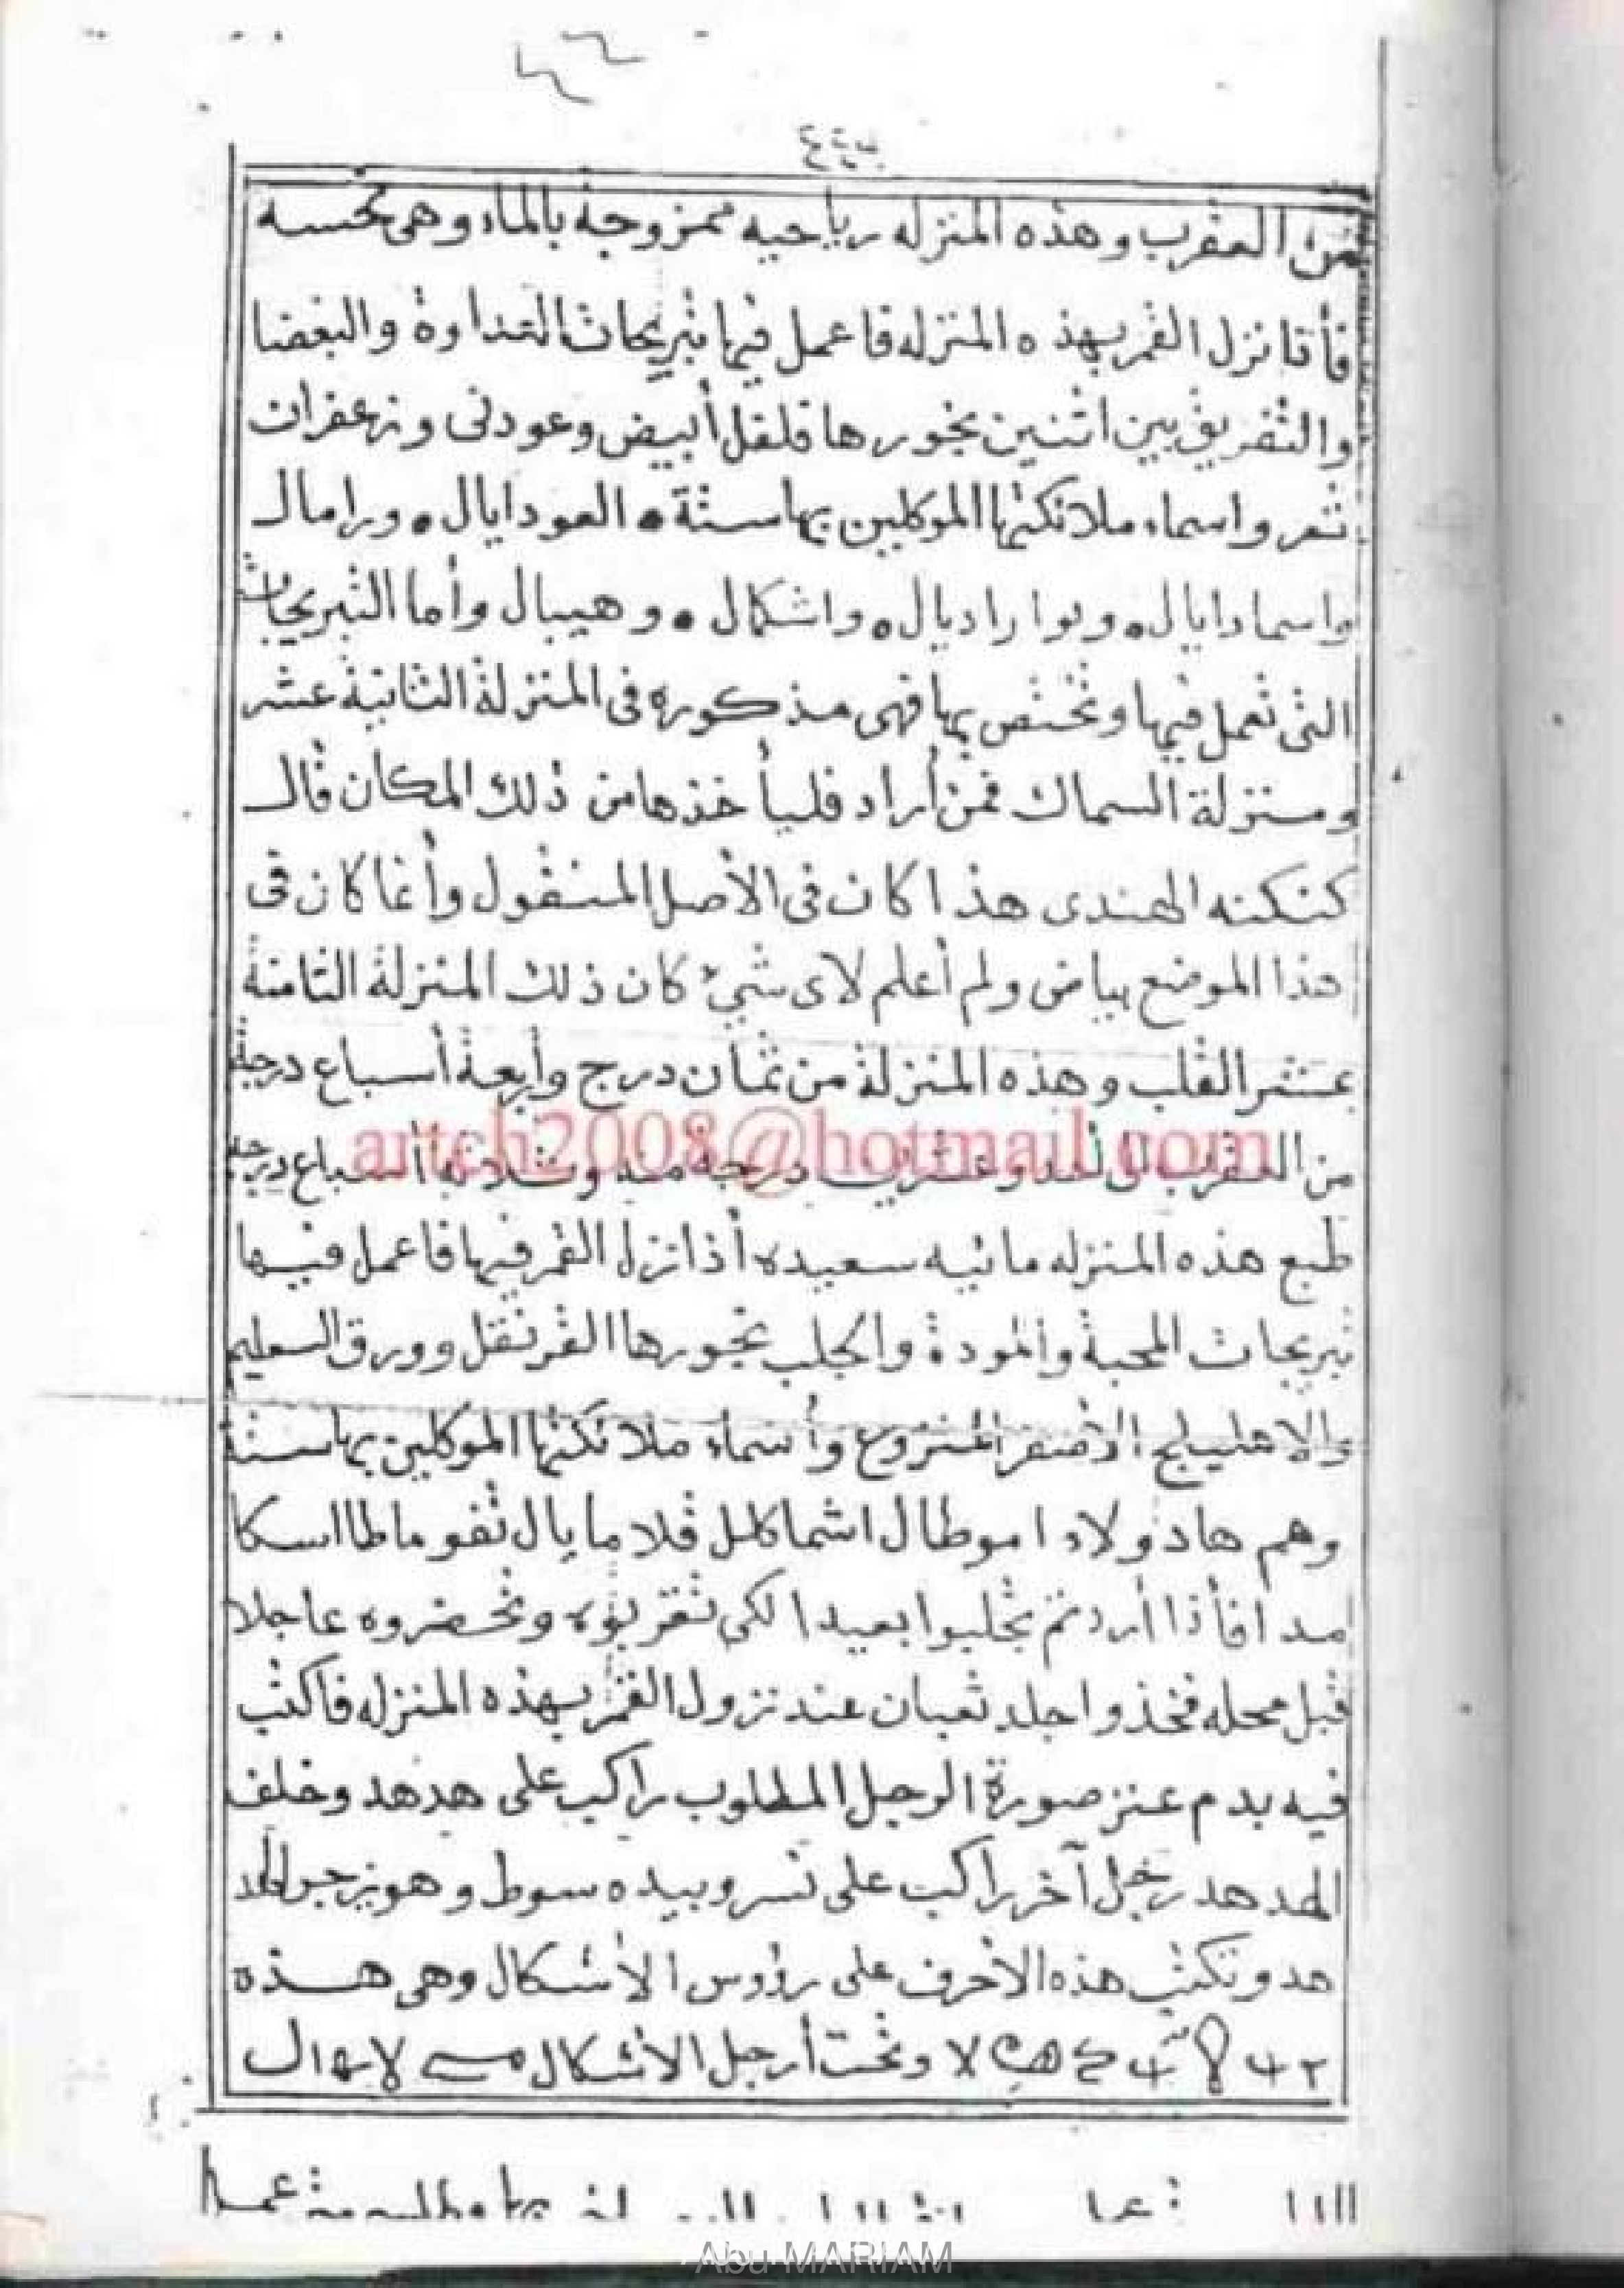 من العقرب وهذه المنزله رياحيه ممزوجة بالماء وهي نحسه
فأذا نزل القمر بهذه المنزله فاعمل فيها نيريجات العداوة والبغضا
والتفريق بين اثنين بخورها فلفل أبيض وعودنى وزعفران
شعر واسماء ملائكتها الموكلين بها ستة • العودايال • ورامال
واسمادايال • ونوارا ديال • واشكال • وهيبال وأما النيريجات
التي تعمل فيها وتختص بها فهي مذكوره في المنزلة الثانية عشر
ومنزلة السماك فمن أراد فليأخذها من ذلك المكان قال
كنكنه الهندى هذا كان في الأصل المنقول وأنما كان في
هذا الموضع بياض ولم أعلم لاى شيء كان ذلك المنزلة الثامنة
عشر القلب وهذه المنزلة من ثمان درج وأربعة أسباع درجة
من العقرب الى أحد وعشرين درجة منه وثلاثة أسباع درجه
artch2008@hotmail.com
طبع هذه المنزله مائيه سعيده أذا نزل القمر فيها فاعمل فيها
نيريجات المحبة والمودة والجلب بخورها القرنفل وورق السليم
والاهليلج الأصفر المنزوع وأسماء ملائكتها الموكلين بها ستة
وهم هاد ولاء اموطال اشماكلل قلا مايال نقو ماطا اسكا
مد افأذا أردتم تجلبوا بعيدا لكي تقربوه وتحضروه عاجلا
قبل محله فخذوا جلد ثعبان عند نزول القمر بهذه المنزله فاكتب
فيه بدم عنز صورة الرجل المطلوب راكب على هدهد وخلف
الهدهد رجل آخر راكب على نسر وبيده سوط وهو يزجر الهد
هد وتكتب هذه الأحرف على رؤوس الأشكال وهي هذه
لا وتحت أرجل الأشكال
Abu MARIAM